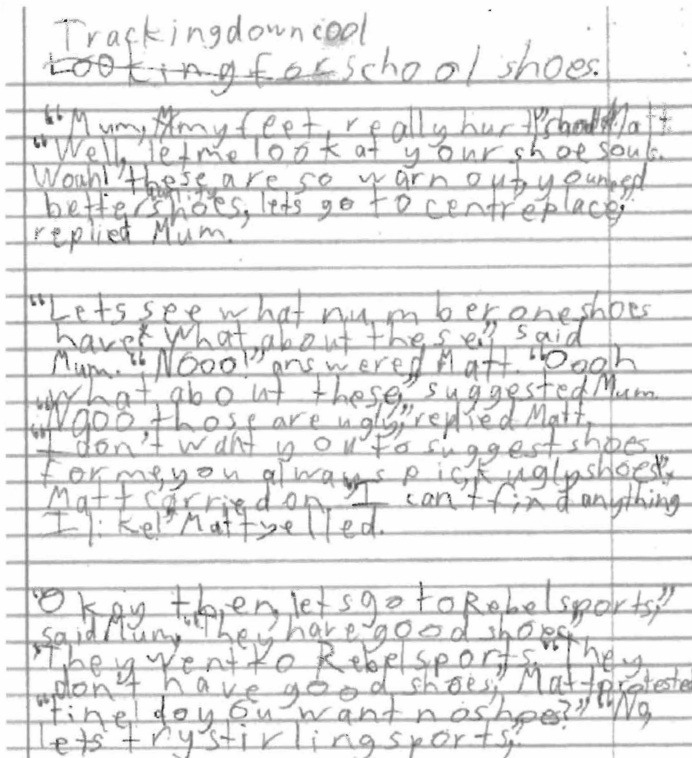 Trackingdowncool
Looking for school shoes.
"Mum, my feet really hurt," shouted Matt
"Well, let me look at your shoe souls.
Woah! these are so warn out, you need
better quality shoes, lets go to centreplace,"
replied Mum.
"Lets see what number one shoes
have" "What about these," said
Mum. "Nooo!" answered Matt. "Oooh
what about these," suggested Mum.
"Nooo those are ugly," replied Matt.
"I don't want you to suggest shoes
for me, you always pick ugly shoes".
Matt carried on, "I can't find anything
I like!" Matt yelled.
"Okay then, lets go to Rebel sports,"
said Mum, "they have good shoes,"
They went to Rebel sports. "They
don't have good shoes," Matt protested
"fine! do you want no shoes?" "No,
lets try stirling sports,"